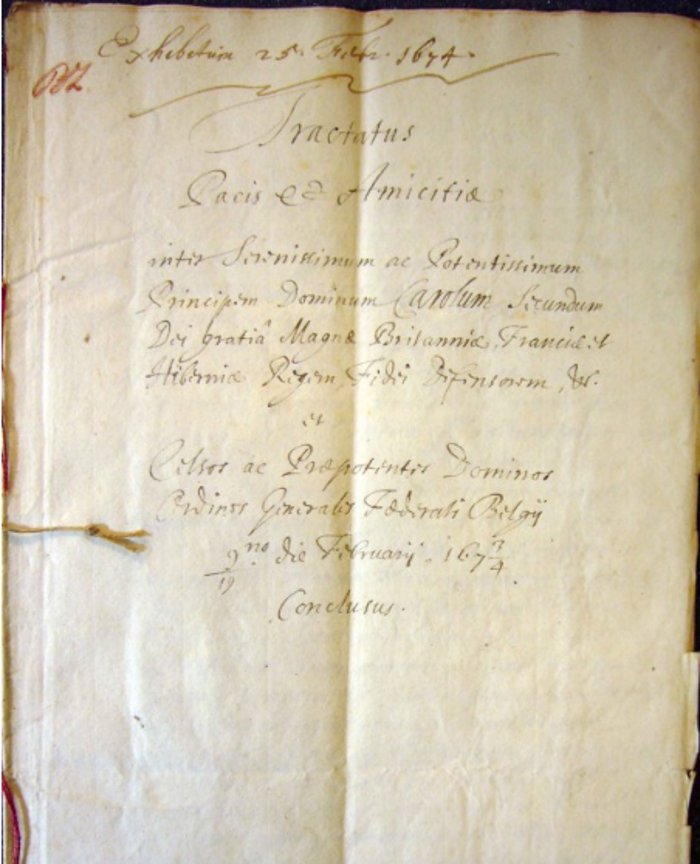 Exhebitum 25. Febr. 1674.
Tractatus
Pacis et Amicitiæ
inter Serenissimum ac Potentissimum
Principem Dominum Carolum Secundum
Dei gratiâ Magnæ Britanniæ, Franciæ et
Hiberniæ Regem, Fidei Defensorem, &c.
et
Celsos ac Præpotentes Dominos
Ordines Generales Fæderati Belgij
9/19 no die Februarij. 167 3/4
Conclusus.